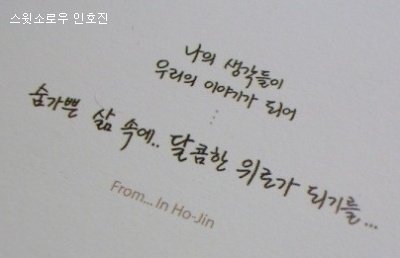 스윗소로우 인호진
나의 생각들이
우리의 이야기가 되어
⋮
숨가쁜 삶 속에.. 달콤한 위로가 되기를...
From... In Ho-Jin